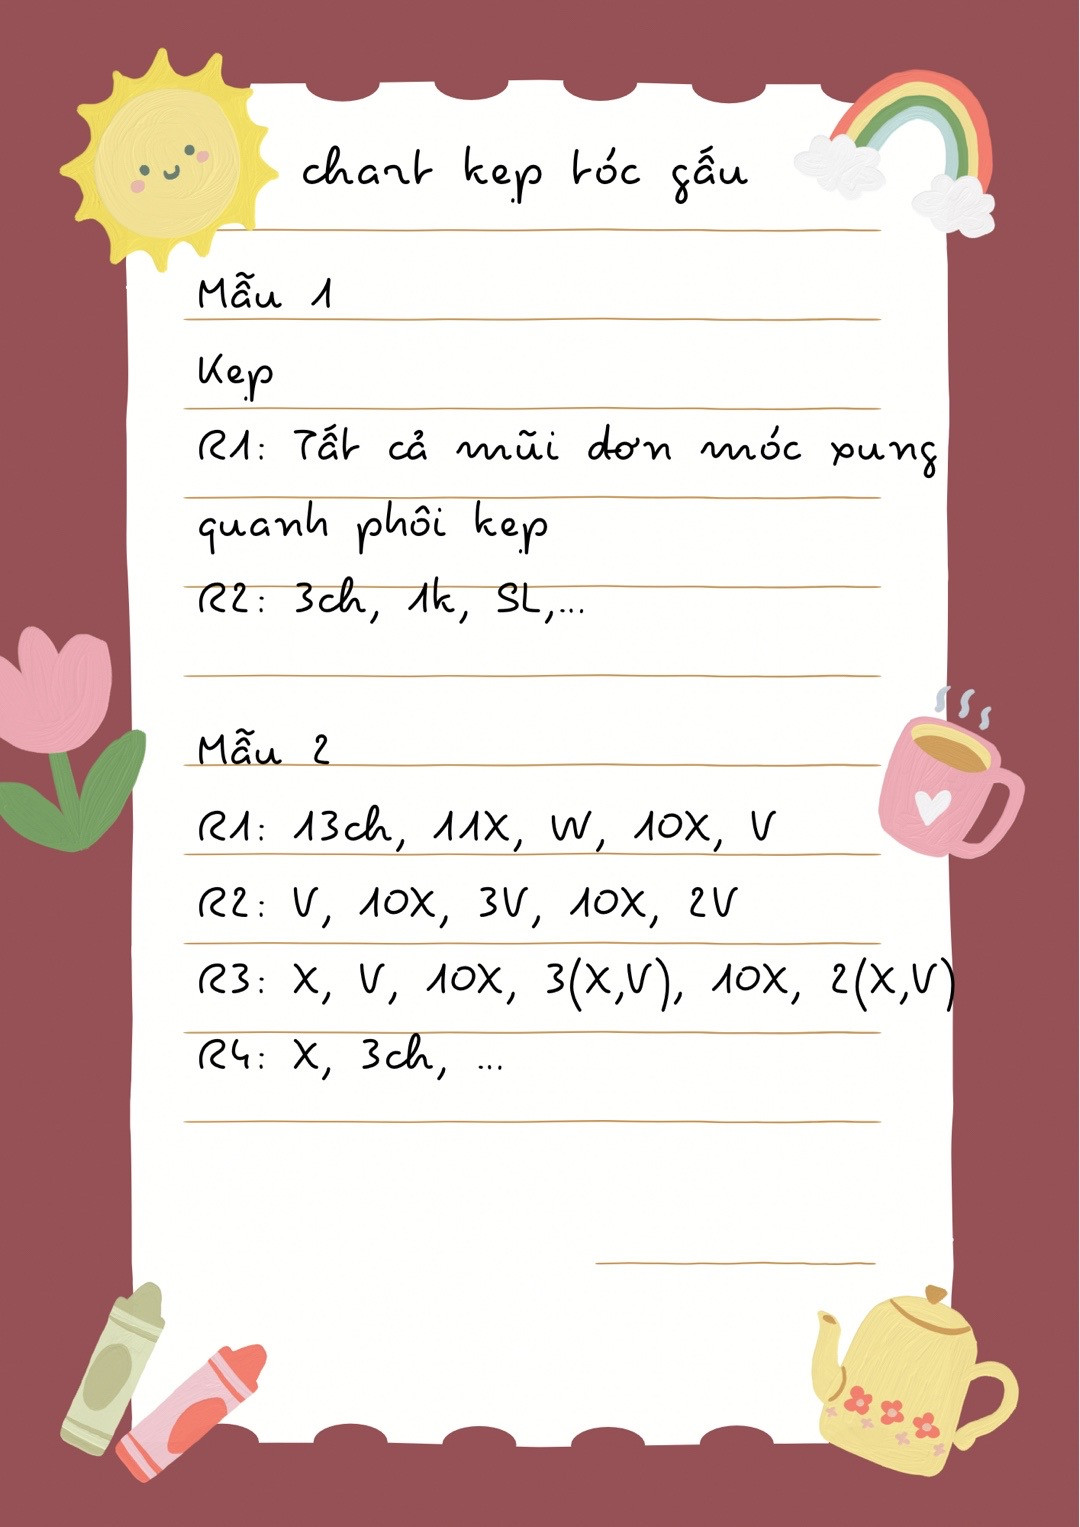 chart kẹp tóc gấu
Mẫu 1
Kẹp
R1: Tất cả mũi dơn móc xung
quanh phôi kẹp
R2: 3ch, 1k, SL,...
Mẫu 2
R1: 13ch, 11X, W, 10X, V
R2: V, 10X, 3V, 10X, 2V
R3: X, V, 10X, 3(X,V), 10X, 2(X,V)
R4: X, 3ch, ...